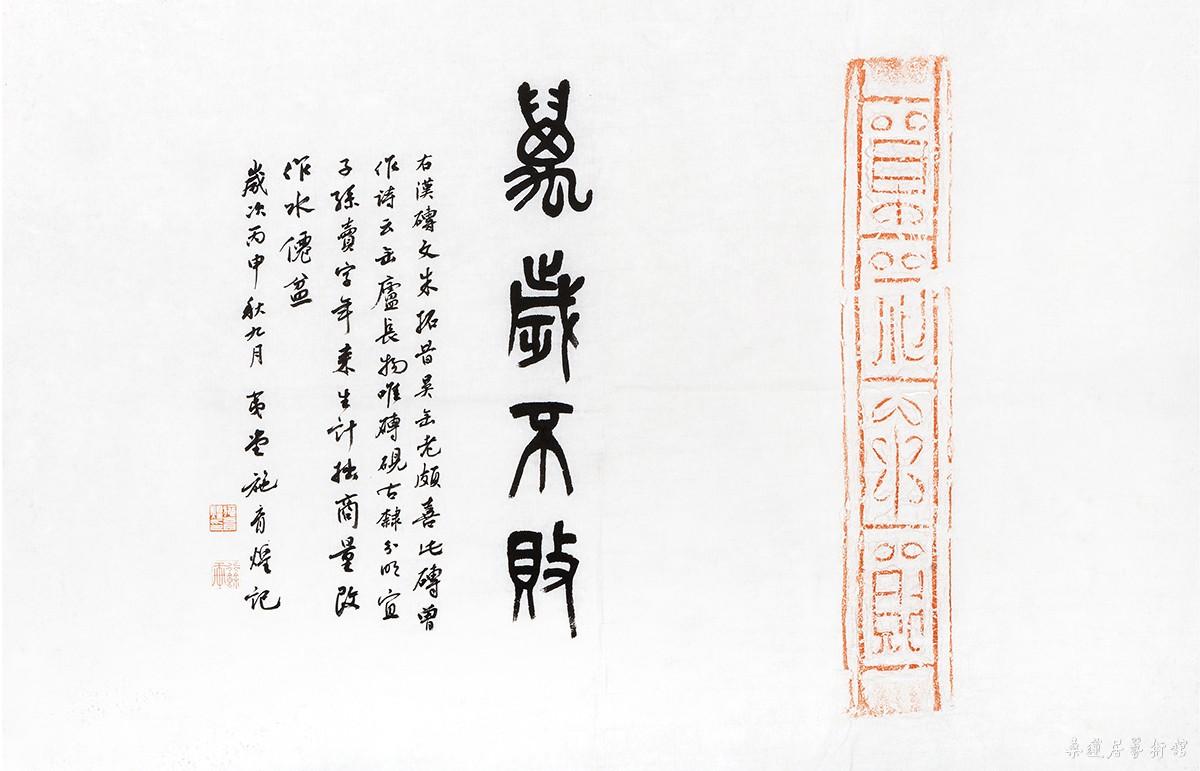 萬歲不敗
右漢磚文朱拓昔吳缶老頗喜此磚曾
作诗云缶廬長物唯磚硯古隸分明宜
子孫賣字年來生計拙商量改
作水僊盆
歲次丙申秋九月 夷堂施育煌記
桑蓮居藝術館